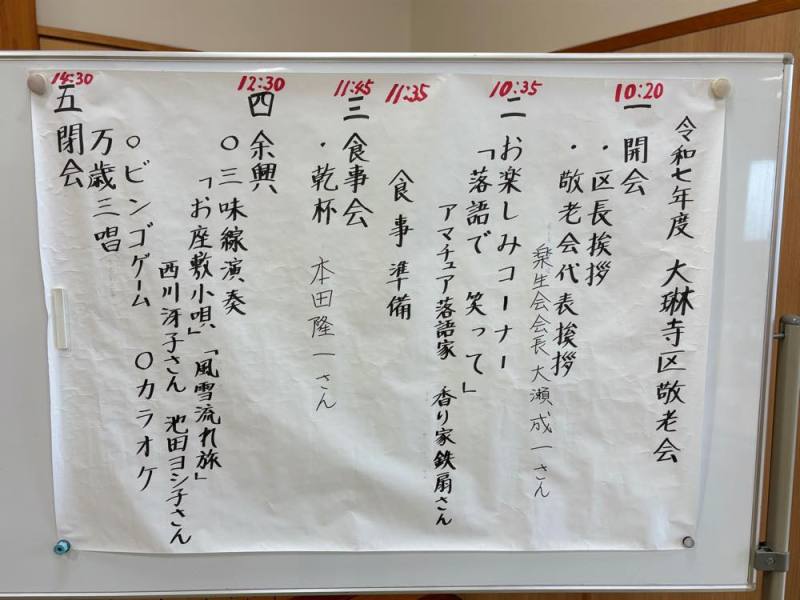 令和七年度 大琳寺区敬老会
10:20
一 開会
・区長挨拶
・敬老会代表挨拶
楽生会会長 大瀬成一さん
10:35
二 お楽しみコーナー
「落語で 笑って」
アマチュア落語家 香り家鉄扇さん
11:35
食事準備
11:45
三 食事会
・乾杯 本田隆一さん
12:30
四 余興
○三味線演奏
「お座敷小唄」「風雪流れ旅」
西川冴子さん 池田ヨシ子さん
○ビンゴゲーム ○カラオケ
万歳三唱
14:30
五 閉会